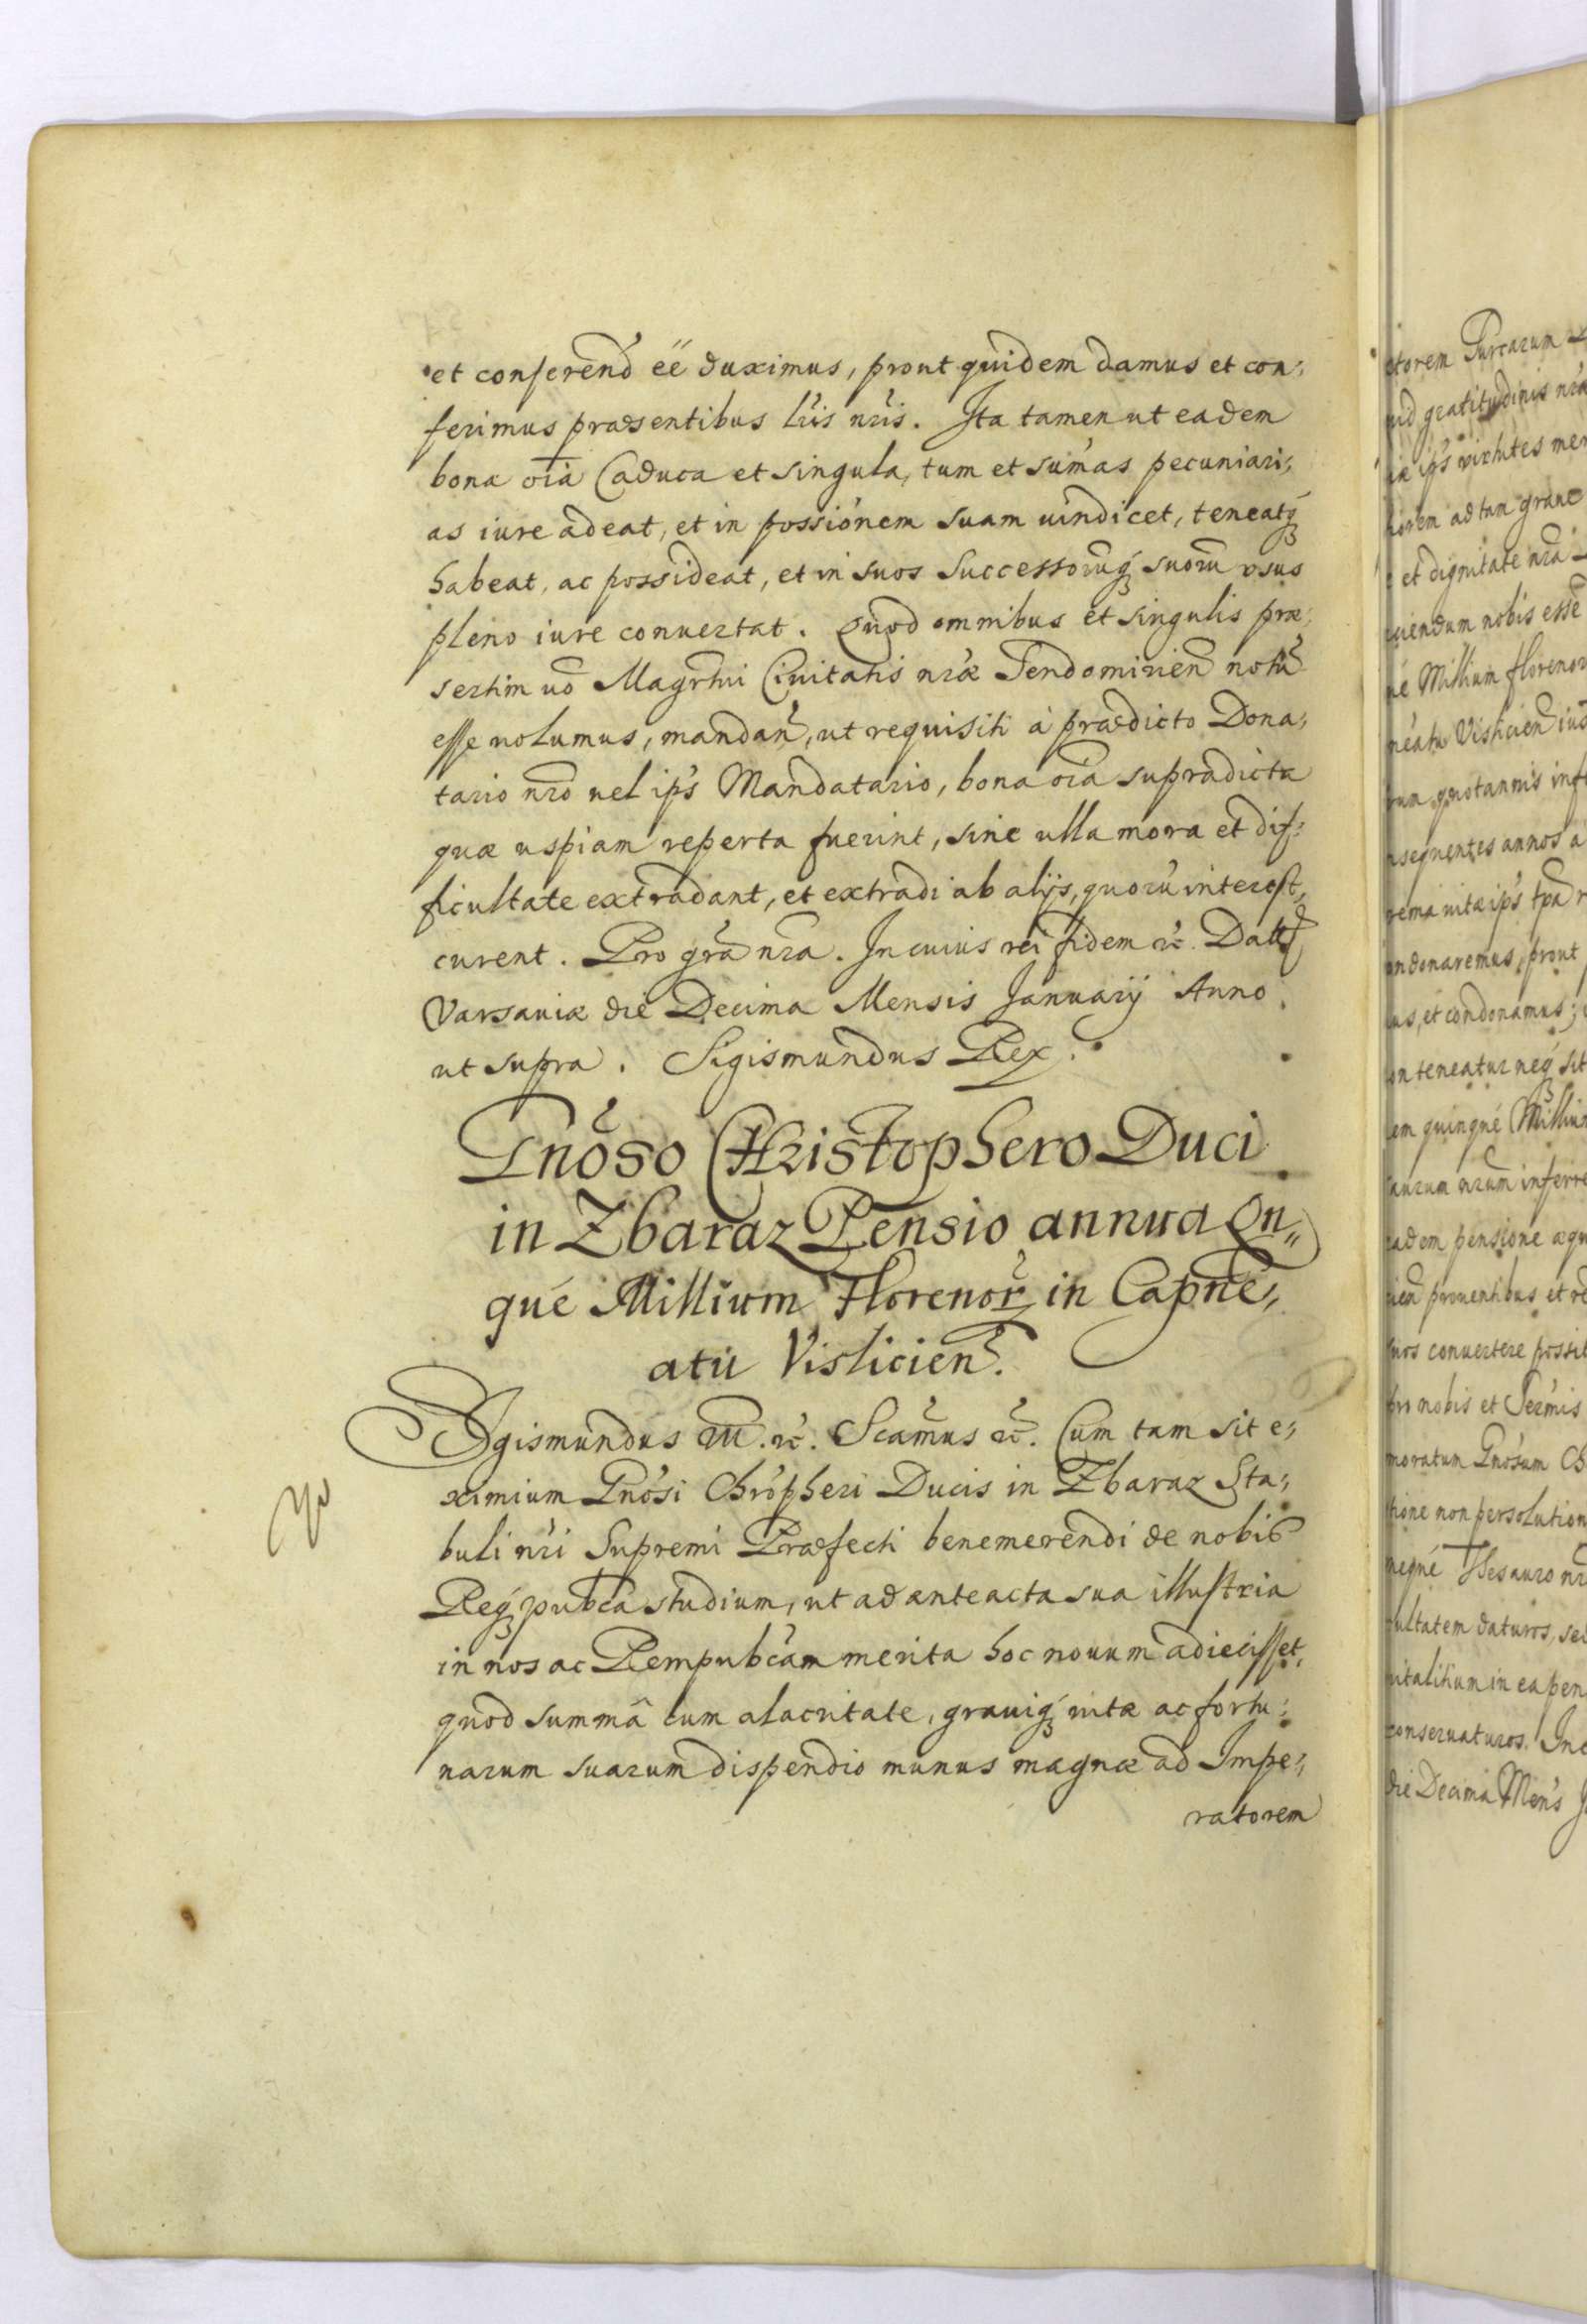 et conferend ēē duximus, prout quidem damus et con;
ferimus præsentibus lris nris. Ita tamen ut eadem
bona oia Caduca et singula, tum et sumas pecuniari;
as iure adeat, et in possionem suam uindicet, teneatq
habeat, ac possideat, et in suos Successorūq suorū vsus
pleno iure conuertat. Quod omnibus et singulis præ;
sertim uo Magrtui Ciuitatis nræ Sendomirien notū
esse uolumus, mandan, ut requisiti à prædicto Dona;
tario nro uel ips Mandatario, bona oia supradicta
quæ uspiam reperta fuerint, sine ulla mora et dif;
ficultate extradant, et extradi ab alijs, quorū interest,
curent. Pro gra nra. In cuius rei fidem &c. Datt
Varsauiæ die Decima Mensis Januarij Anno
ut supra. Sigismundus Rex.
Gnoso Christophero Duci
in Zbaraz Pensio annua Qn„
que Millium Florenor in Capne;
atu Vislicien.
Sigismundus III. &c. Scamus &c. Cum tam sit e;
ximium Gnosi Chrophери Ducis in Zbaraz Sta;
buli nri Supremi Præfecti benemerendi de nobis
Req pubca studium, ut ad anteacta sua illustria
in nos ac Rempubcam merita hoc nouum adiecisset,
quod summâ cum alacritate, grauiq uitæ ac fortu;
narum suarum dispendio munus magnæ ad Impe;
ratorem
storem Turcarum
gratitudinis nra
ips virtutes
ad tam graue
et dignitate nra
nobis esse
Millium florenor
Vislicien ius
quotannis inf
sequentes annos à
uitæ ips tpa
ndonaremus, prout
us, et condonamus;
teneatur neq sit
em quinque Milliu
nrum inferre
adem pensione æqu
prouentibus et re
uos conuertere possit
nobis et Sermis
moratum Gnosum Ch
tione non persolution
neque Thesauro nr
ultatem daturos, se
uitalitium in ea pen
conseruaturos. In c
die Decima Mens J